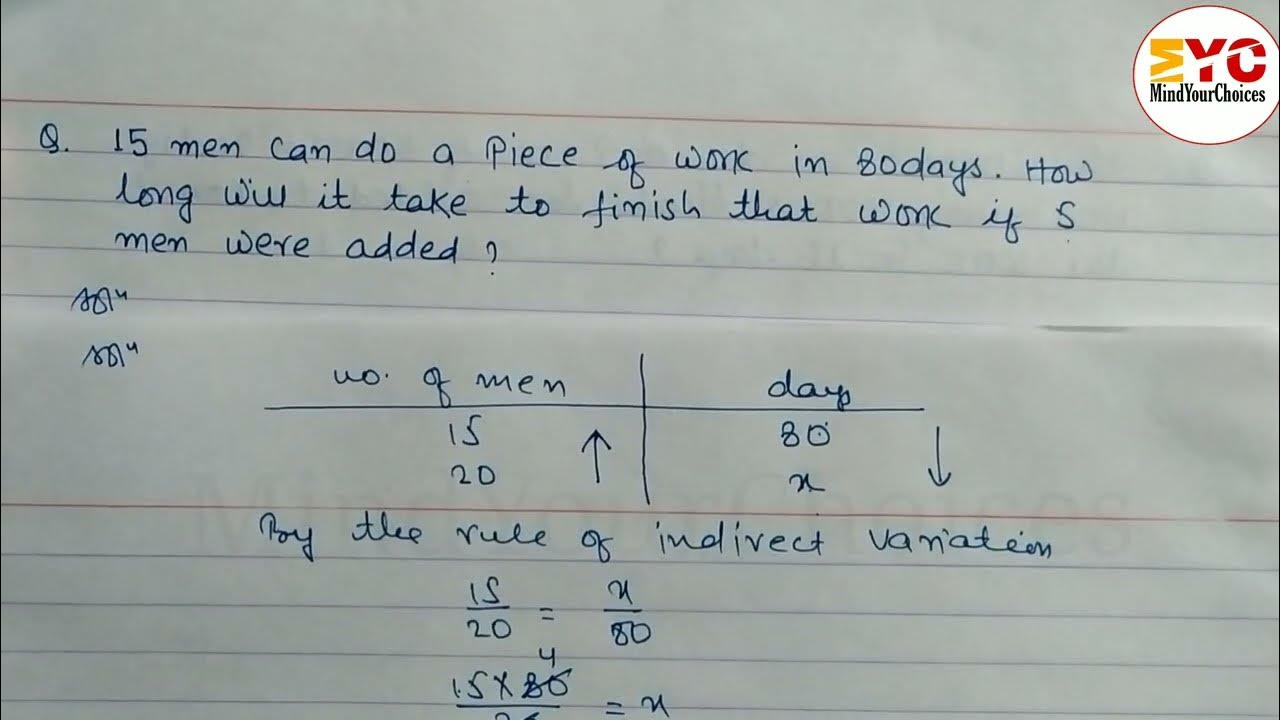 MYC
MindYourChoices
Q. 15 men can do a piece of work in 80days. How
long will it take to finish that work if 5
men were added?
Solⁿ
Solⁿ
no. of men | days
15 80
20 x
By the rule of indirect variation
15/20 = x/80
4
15×80/20 = x